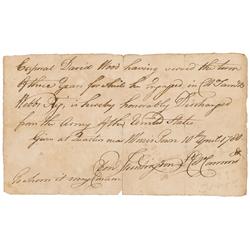 Corporal David Wood having served the term
of three Years for which he engaged in Col Samll
Webbs Regt, is hereby honorably Discharged
from the Army of the United States
Given at Quarters near Morris Town 10th April 1780
To whom it may Concern